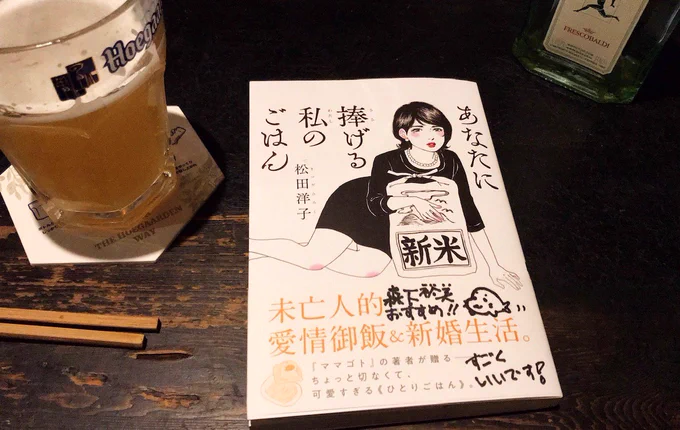 Hoegaarden
THE HOEGAARDEN
WAY
FRESCOBALDI
あなたに
捧げる
私の
ごはん
松田洋子
新米
未亡人的
愛情御飯&新婚生活。
森下裕美
おすすめ!!
『ママゴト』の著者が贈る
ちょっと切なくて、
可愛すぎる《ひとりごはん》。
すごく
いいです!